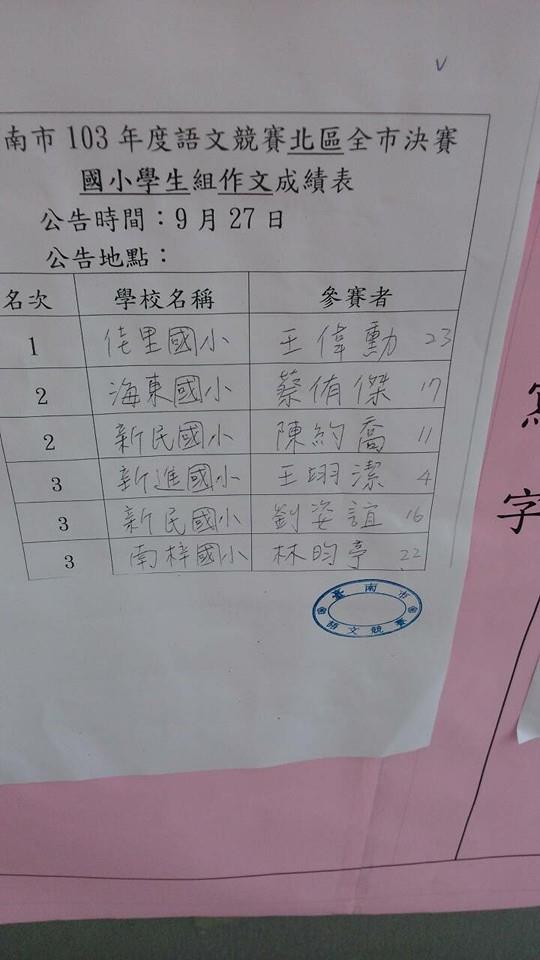 南市 103 年度語文競賽北區全市決賽
國小學生組作文成績表
公告時間：9 月 27 日
公告地點：
名次 學校名稱 參賽者
1 佳里國小 王偉勳 23
2 海東國小 蔡侑傑 17
2 新民國小 陳約喬 11
3 新進國小 王翊潔 4
3 新民國小 劉姿誼 16
3 南梓國小 林昀亭 22
臺南市
語文競賽
字